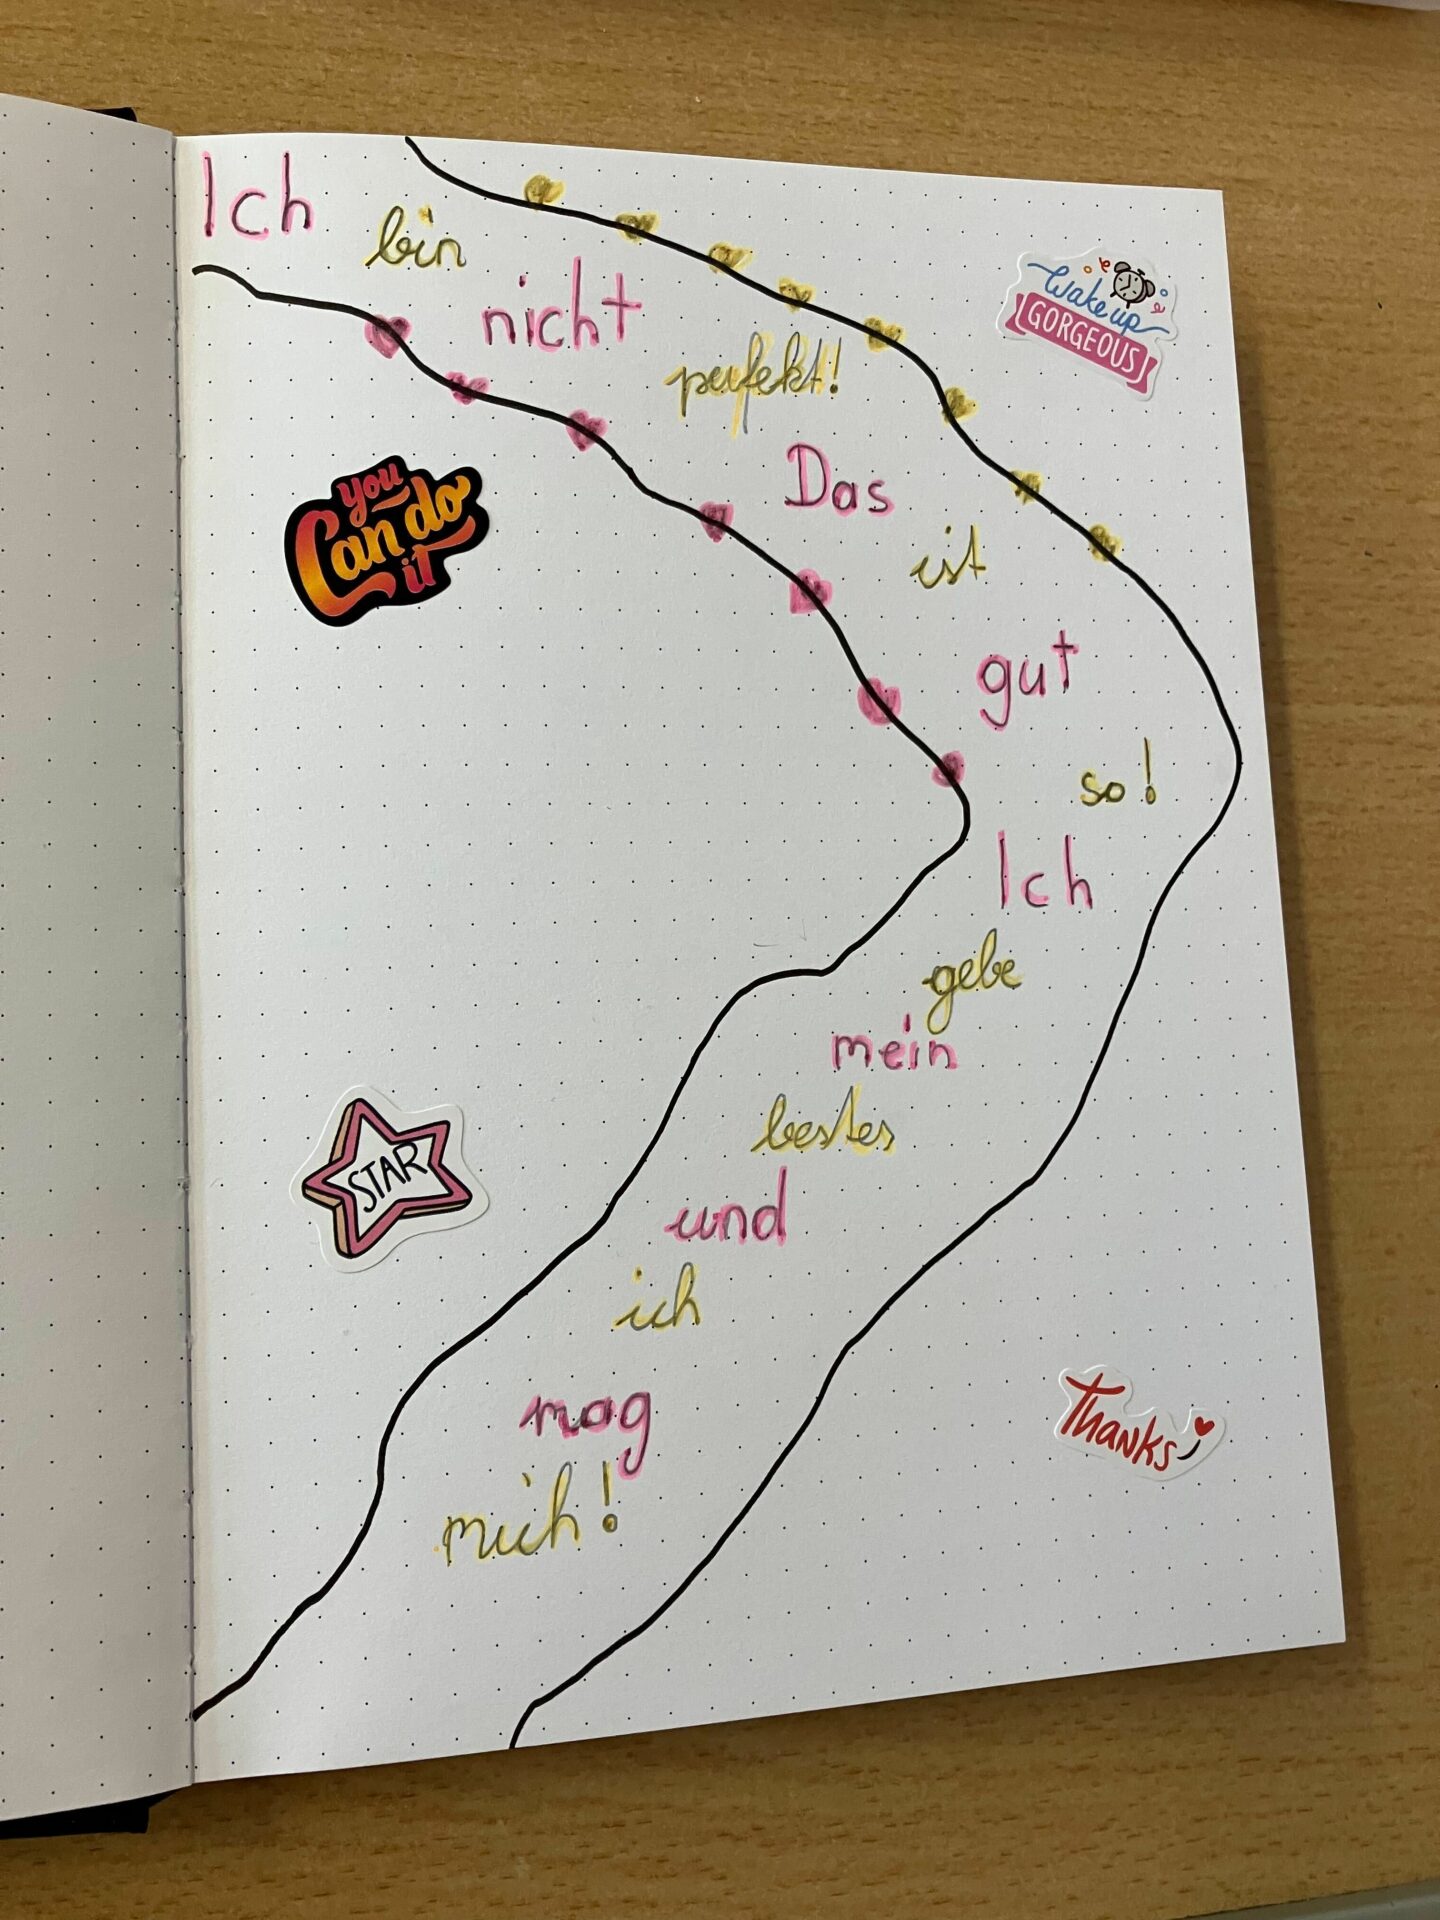 Ich
bin
nicht
perfekt!
Das
ist
gut
so!
Ich
gebe
mein
bestes
und
ich
mag
mich!
Wake up
GORGEOUS
you
Can do
it
STAR
Thanks